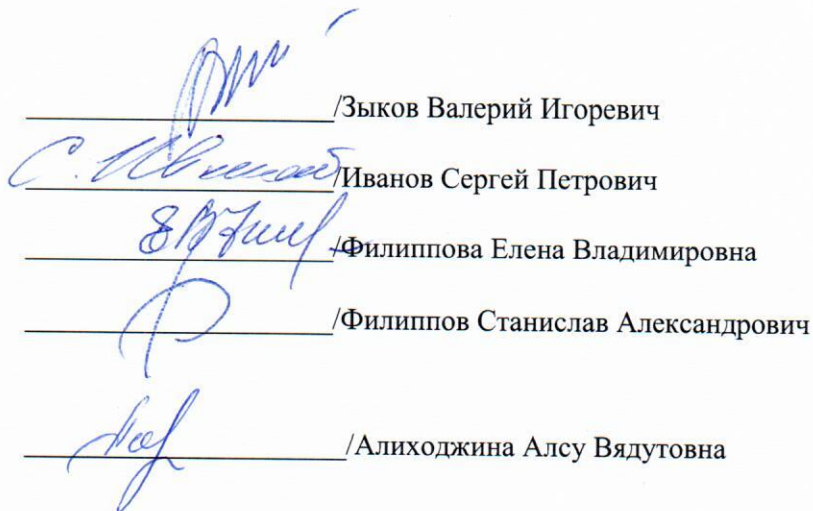 /Зыков Валерий Игоревич
/Иванов Сергей Петрович
/Филиппова Елена Владимировна
/Филиппов Станислав Александрович
/Алиходжина Алсу Вядутовна